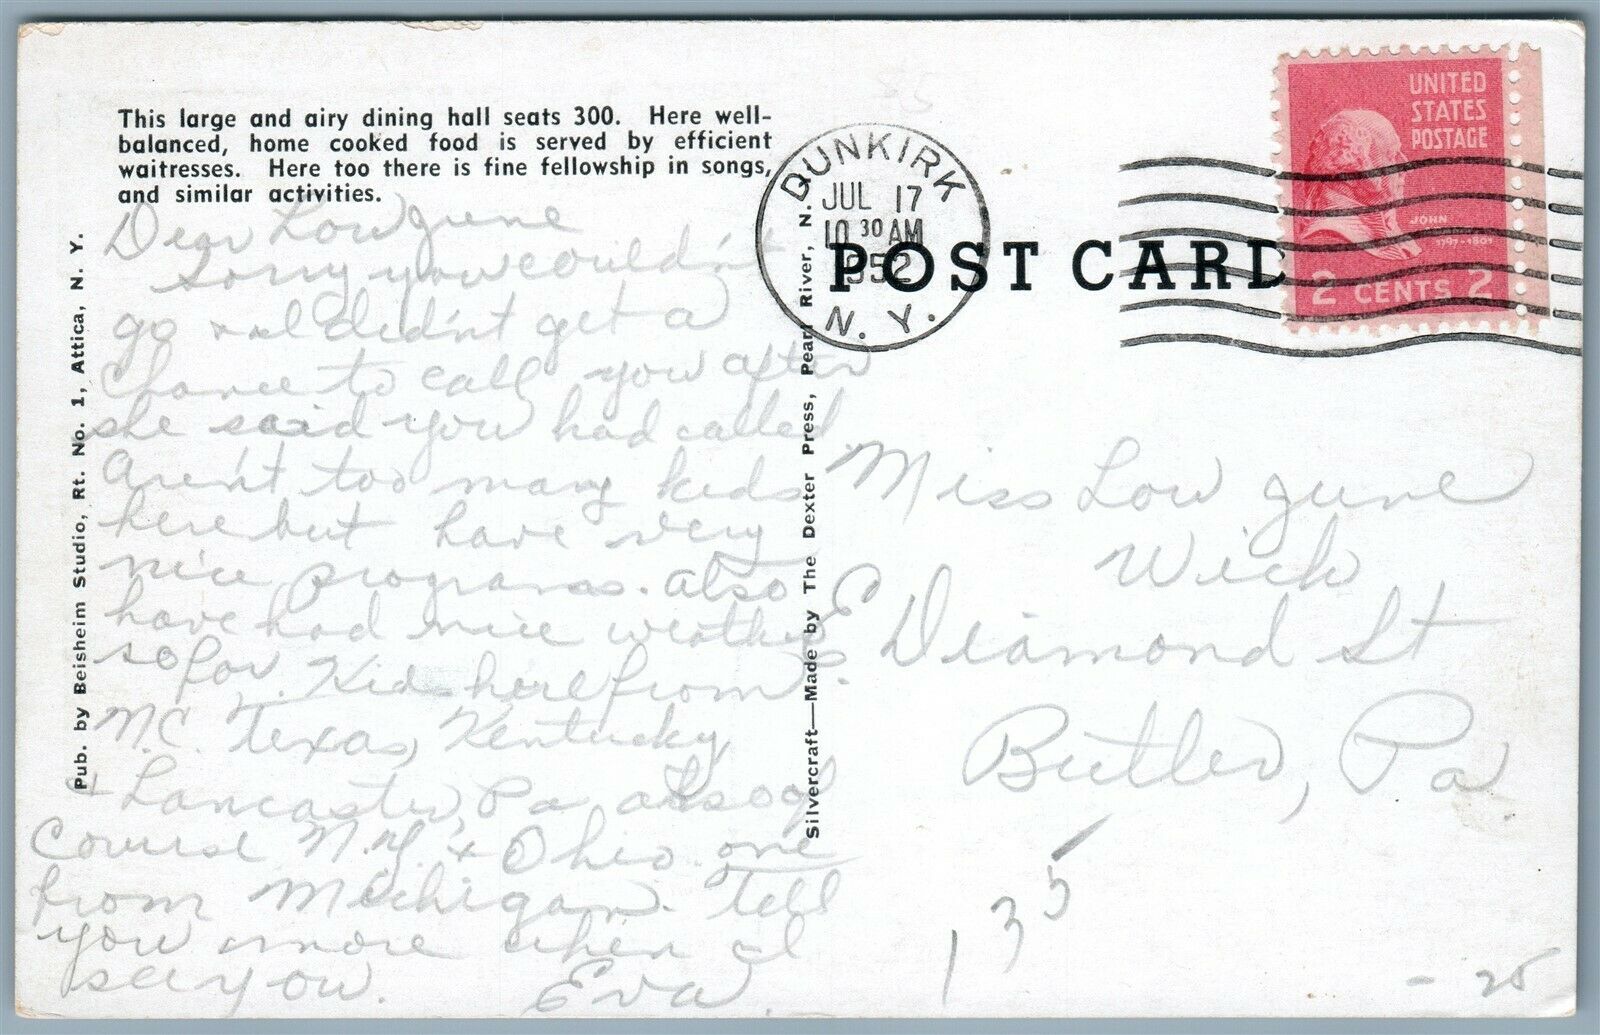 This large and airy dining hall seats 300. Here well-
balanced, home cooked food is served by efficient
waitresses. Here too there is fine fellowship in songs,
and similar activities.
Dear Low June
Sorry you couldn't
go and I didn't get a
chance to call you after
she said you had called
Aren't too many kids
here but have very
nice programs. Also
have had nice weather
so far. Kids here from
N.C. Texas, Kentucky,
+ Lancaster, Pa also of
course N.Y. + Ohio. one
from Michigan. Tell
you more when I
see you. Eva
Pub. by Beisheim Studio, Rt. No. 1, Attica, N. Y.
Silvercraft—Made by The Dexter Press, Pearl River, N.
DUNKIRK
JUL 17
10 30 AM
1952
N. Y.
POST CARD
UNITED
STATES
POSTAGE
JOHN
1797-1801
2 CENTS 2
Miss Low June
Wick
E Diamond St
Butler, Pa
135
- 25